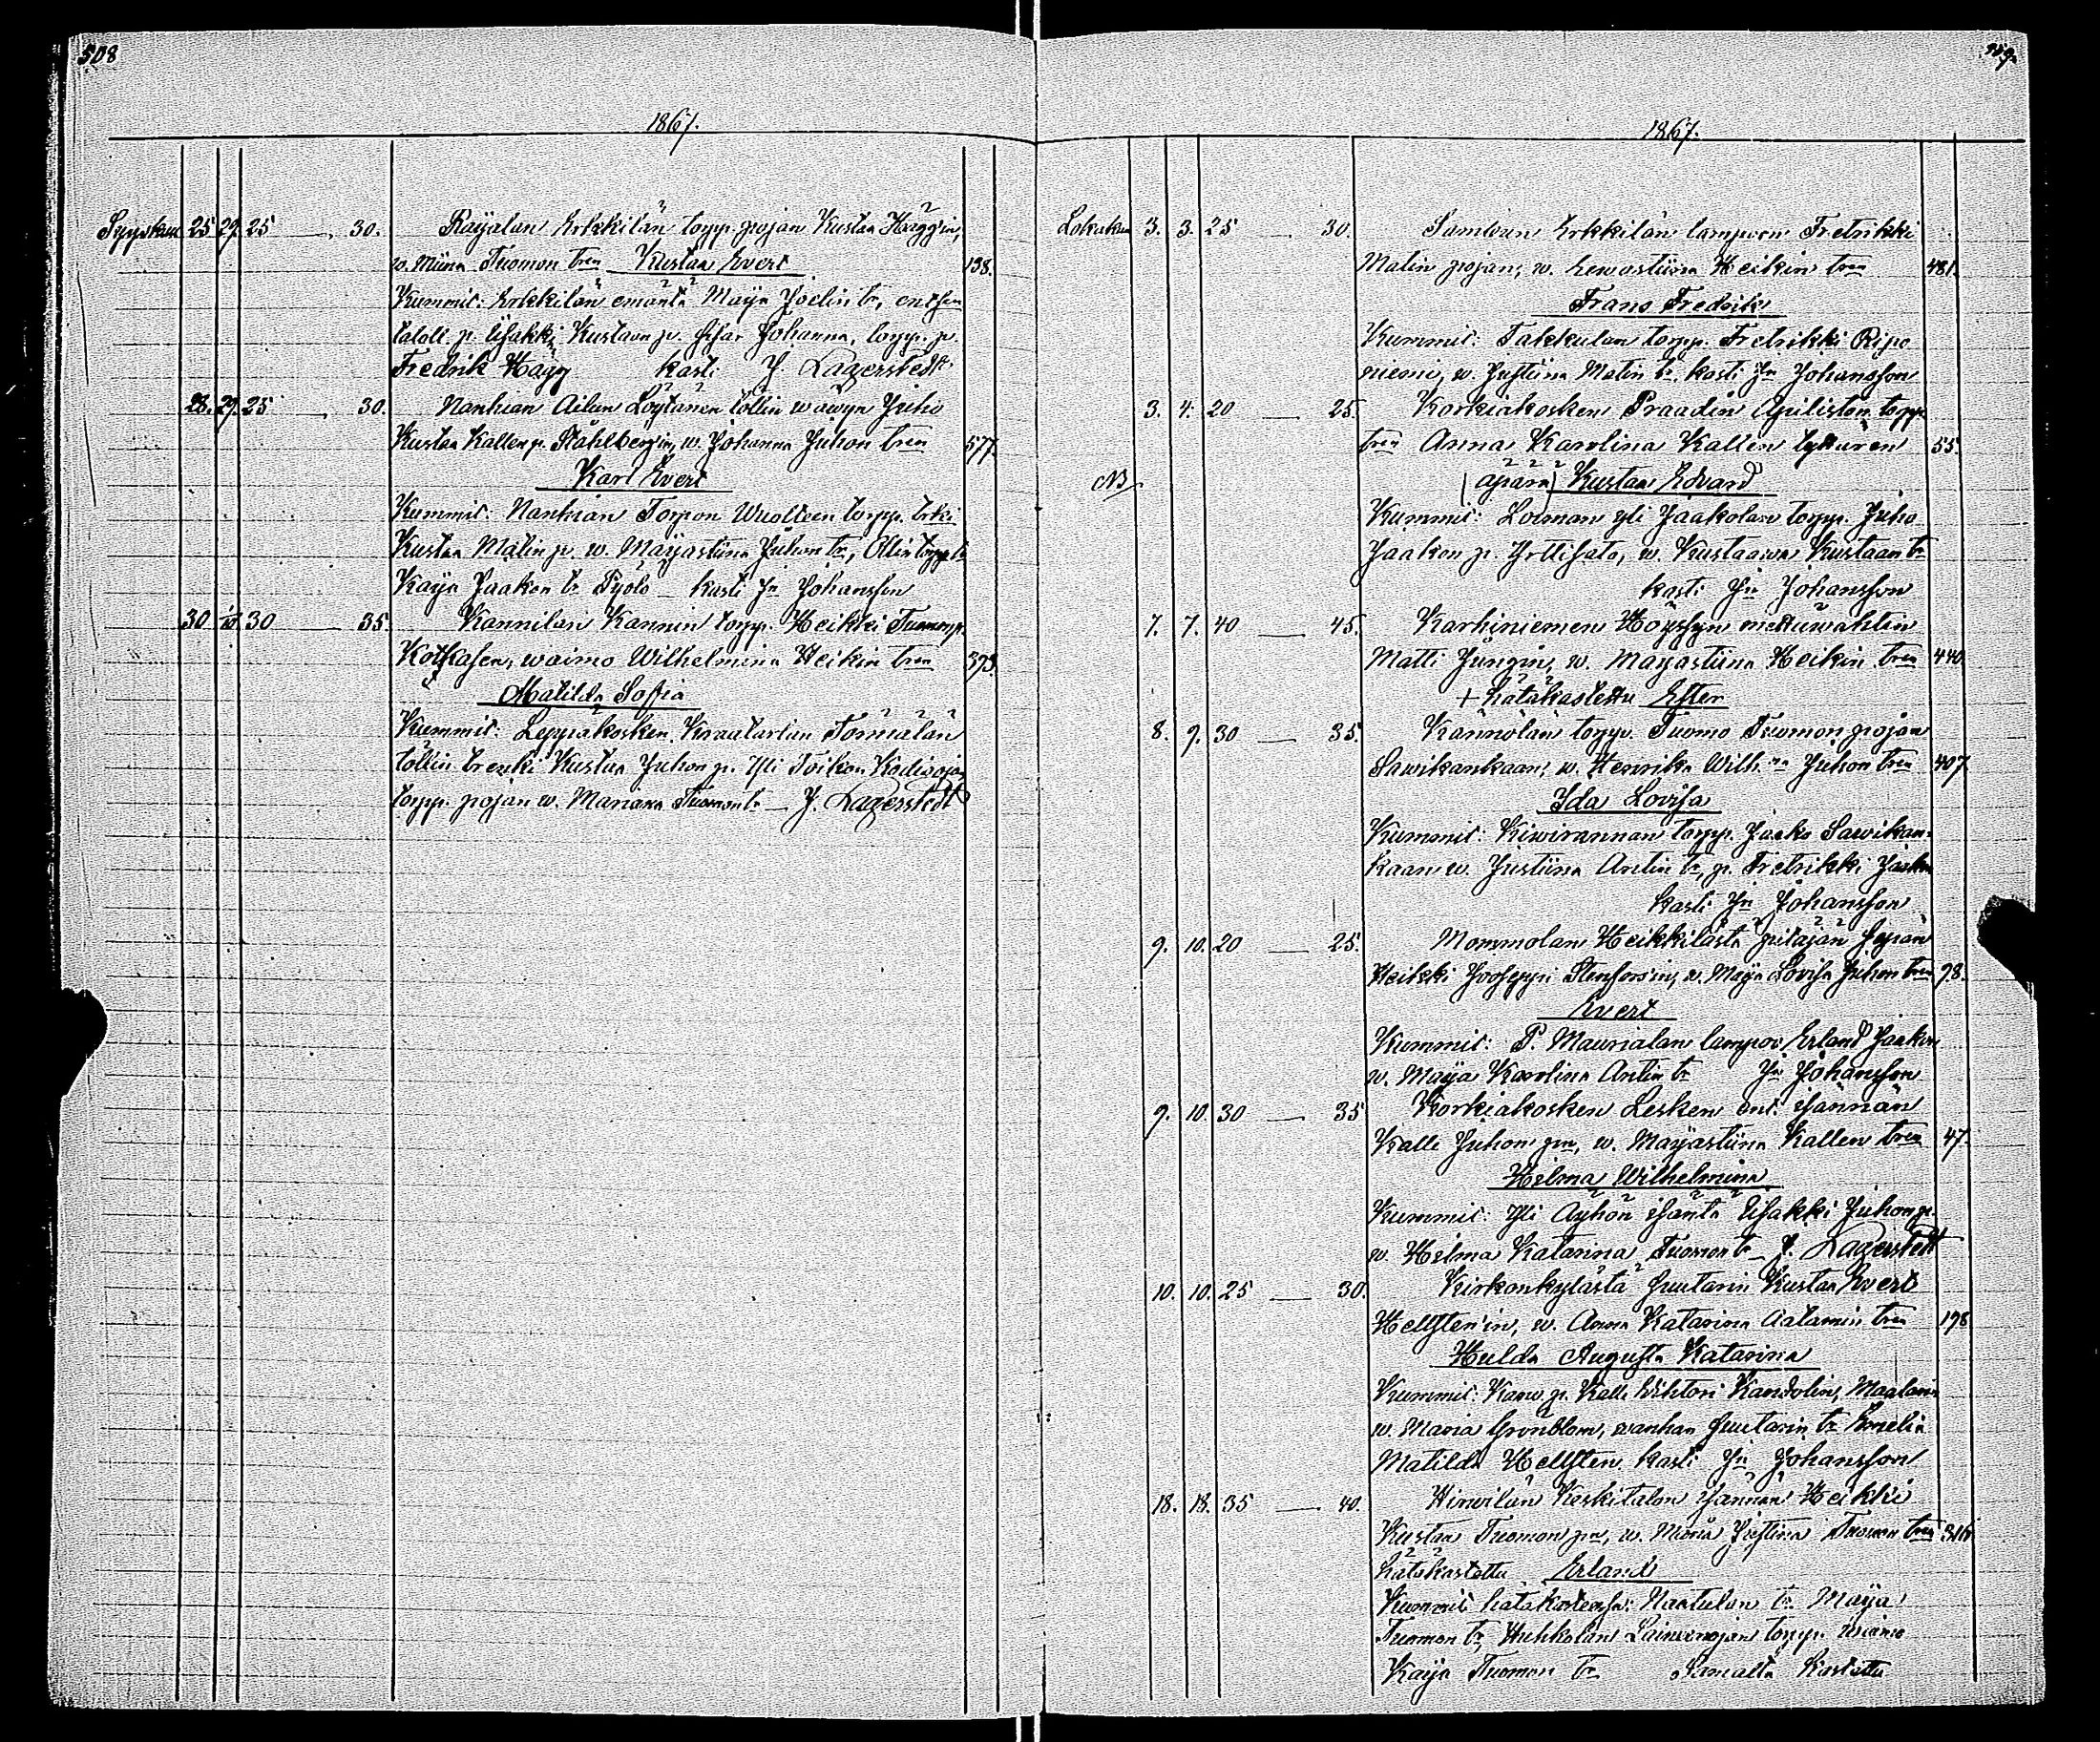 508
1867.
Syysku 25 29. 25 — 30. Raijalan Erkkilän torpp. pojan Kustaa Hägg'in,
w. Miina Tuomon tren Kustaa Evert 138.
Kummit: Erkkilän emäntä Maija Joelin tr,
taloll. p. Isakki Kustaan p. sisar Johanna, torpp. p.
Fredrik Hägg kasti J. Lagerstedt
28. 29. 25 — 30. Nanhian Ailun Löytänen töllin wäwyn Juho
Kustaa Kallen p. Ståhlberg'in, w. Johanna Juhon tren 577.
Karl Evert
Kummit: Nanhian Torpon Wuolteen torpp. trki
Kustaa Matin p. w. Marjastiina Juhon tr, Ollin torpp. tr
Kaija Jaakon tr Työlö — kasti Jn Johansson
30 10 30 — 35 Kannilan Kannin torpp. Heikki Tuomonp.
Kotkasen, waimo Wilhelmina Heikin tren 393.
Matilda Sofia
Kummit: Leppäkosken Kraatarlan Törmälän
töllin trenki Kustaa Juhon p. Yli Toikon Kodisojan
torpp. pojan w. Mariana Tuomon tr — J. Lagerstedt
509.
1867.
Lokakuu 3. 3. 25 — 30. Sambun Erkkilän lampuon Fretrikki
Matin pojan, w. Eewastiina Heikin tren 481.
Frans Fredrik
Kummit: Takkulan torpp. Fretrikki Ripo
niemi, w. Justiina Matin tr. kasti Jn Johansson
3. 4. 20 — 25. Korkiakosken Praadin Apiliston torpp.
tren Anna Karolina Kallen tyttären 55.
NB (äpärä) Kustaa Edvard
Kummit: Loiman yli Jaakolan torpp. Juho
Jaakon p. Yrttisalo, w. Kustaawa Kustaan tr
kasti Jn Johansson
7. 7. 40 — 45. Karhiniemen Höyssyn mettuwahtin
Matti Jungin, w. Marjastiina Heikin tren 440.
+ hätäkastettu Ester
8. 9. 30 — 35. Kännölän torpp. Tuomo Tuomon pojan
Sawikankaan, w. Henrika Wilh.na Juhon tren 407.
Ida Lovisa
Kummit: Kiwirannan torpp. Jaako Sawikan-
kaan w. Justiina Antin tr, p. Fretrikki Jaakon
kasti Jn Johansson
9. 10. 20 — 25. Mommolan Heikkilästä pitäjän sepän
Heikki Josseppi Stenfors'in, w. Maija Lovisa Juhon tren 98.
Evert
Kummit: P. Maurialan lampuo Erland Jaakon
w. Maija Karolina Antin tr Jn Johansson
9. 10. 30 — 35 Korkiakosken Lesken ent. isännän
Kalle Juhon pn, w. Marjastiina Kallen tren 47.
Hilma Wilhelmina
Kummit: Yli Äyhön isäntä Isakki Juhon p.
w. Helma Katarina Tuomon tr — J. Lagerstedt
10. 10. 25 — 30. Kirkonkylästä suutarin Kustaa Evert
Hellsten'in, w. Anna Katarina Aatamin tren 198
Hulda Augusta Katarina
Kummit: Kanw. p. Kalle Wihtori Kandolin, Maalarin
w. Maria Grönblom, wanhan suutarin tr Emelia
Matilda Hellsten kasti Jn Johansson
18. 18. 35 — 40. Hirwilän Keskitalon isännän Heikki
Kustaa Tuomon pn, w. Maria Justina Tuomon tren 346
hätäkastettu Erland
Kummit hätäkasteessa: Naatulan tr. Maija
Tuomon tr, Huhkolan torpp. waimo
Kaija Tuomon tr Samalta Kastettu